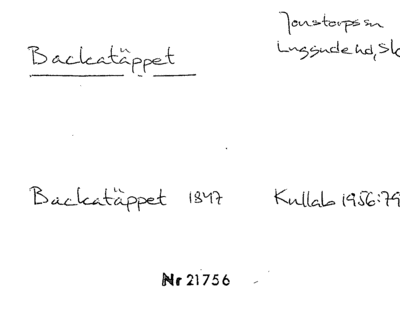 Jonstorps sn
Backatäppet
Luggude hd, Sk
Backatäppet 1847 Kullab 1956:79
Nr 21756